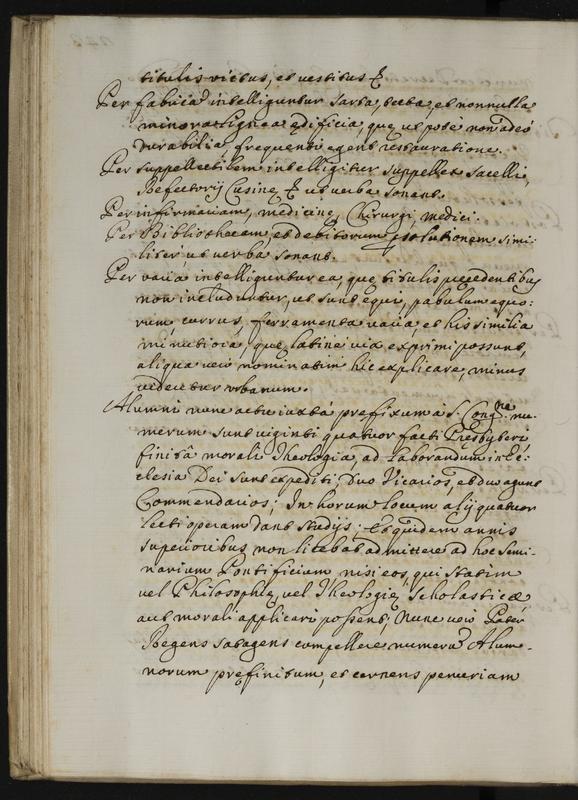 titulis victus, et vestitus &
Per fabrica intelliguntur sarta, tecta, et nonnulla
minora lignea ędificia, quę ut poté non adeó
durabilia, frequenti egent restauratione.
Per suppellectilem intelligitur suppellex sacelli,
Refectorij Cusinę & ut verba sonant.
Per infirmariam, medicinę, Chirurgi, medici.
Per Bibliothecam, et debitorum solutionem simi-
liter, ut verba sonant.
Per varia intelliguntur ea, quę titulis pręcedentibus
non includuntur, ut sunt equi, pabulum equo:
rum, currus, ferramenta varia et his similia
minutiora, quę latine vix exprimi possunt,
aliqua verò nominatim hic explicare, minus
videretur urbanum.
Alumni nunc actu iuxtà prefixum à S. Congne. nu-
merum sunt viginti quatuor facti Presbyteri
finitâ morali Theologia, ad laborandum in Ec:
clesia Dei sunt expediti, duo Vicarios, et duo agunt
Commendarios; In horum locum alij quatuor
lecti operam dant studijs; Et quidem annis
superioribus non licebat admittere ad hoc Semi-
narium Pontificium nisi eos, qui statim
vel Philosophię, vel Theologię Scholasticæ
aut morali applicari possent; Nunc verò Pater
Regens satagens complere numerũ Alum-
norum pręfinitum, et cernens penuriam